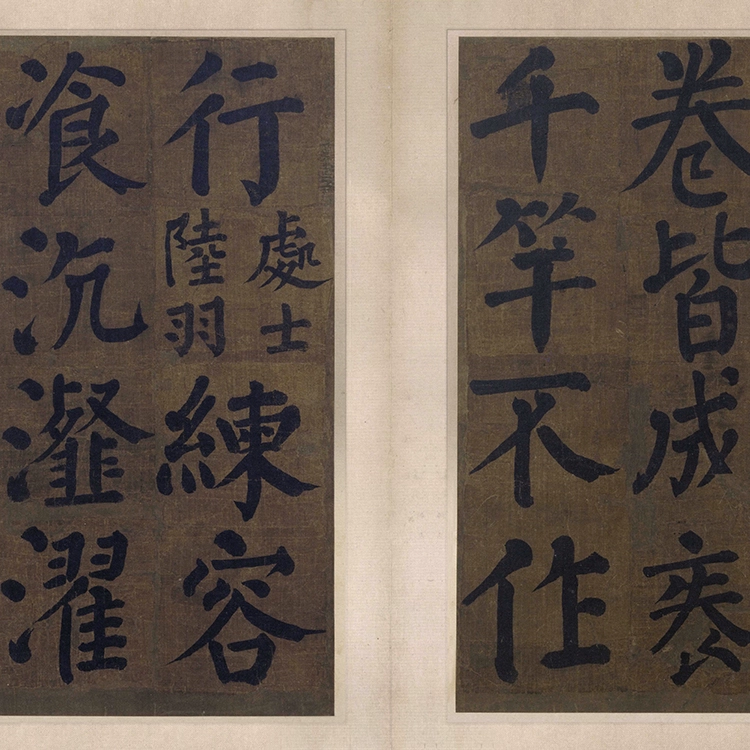 卷皆成袠
千竿不作
行
處士
陸羽
練容
飡沆瀣濯